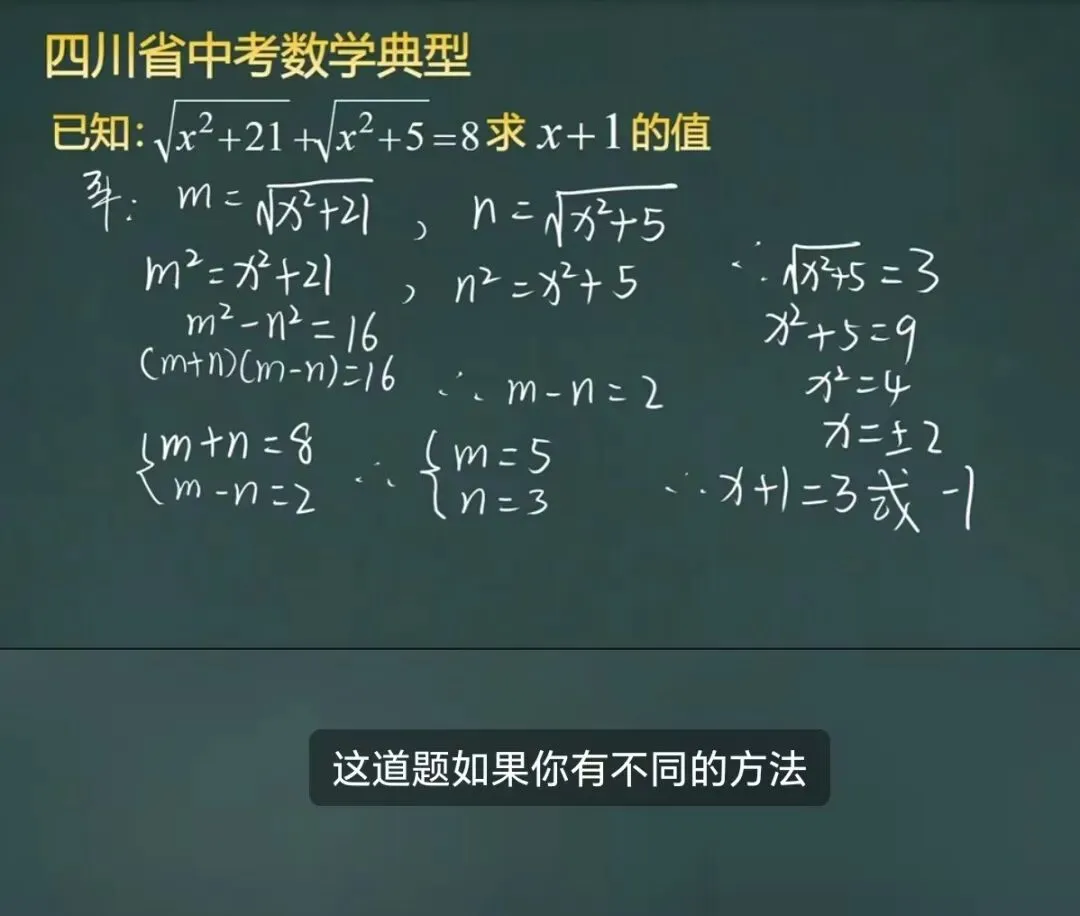 四川省中考数学典型
已知:√(x²+21)+√(x²+5)=8求 x+1的值
解: m=√(x²+21) , n=√(x²+5)
m²=x²+21 , n²=x²+5
m²-n²=16
(m+n)(m-n)=16 ∴ m-n=2
{m+n=8 m-n=2 ∴ {m=5 n=3
∴√(x²+5)=3
x²+5=9
x²=4
x=±2
∴x+1=3或-1
这道题如果你有不同的方法